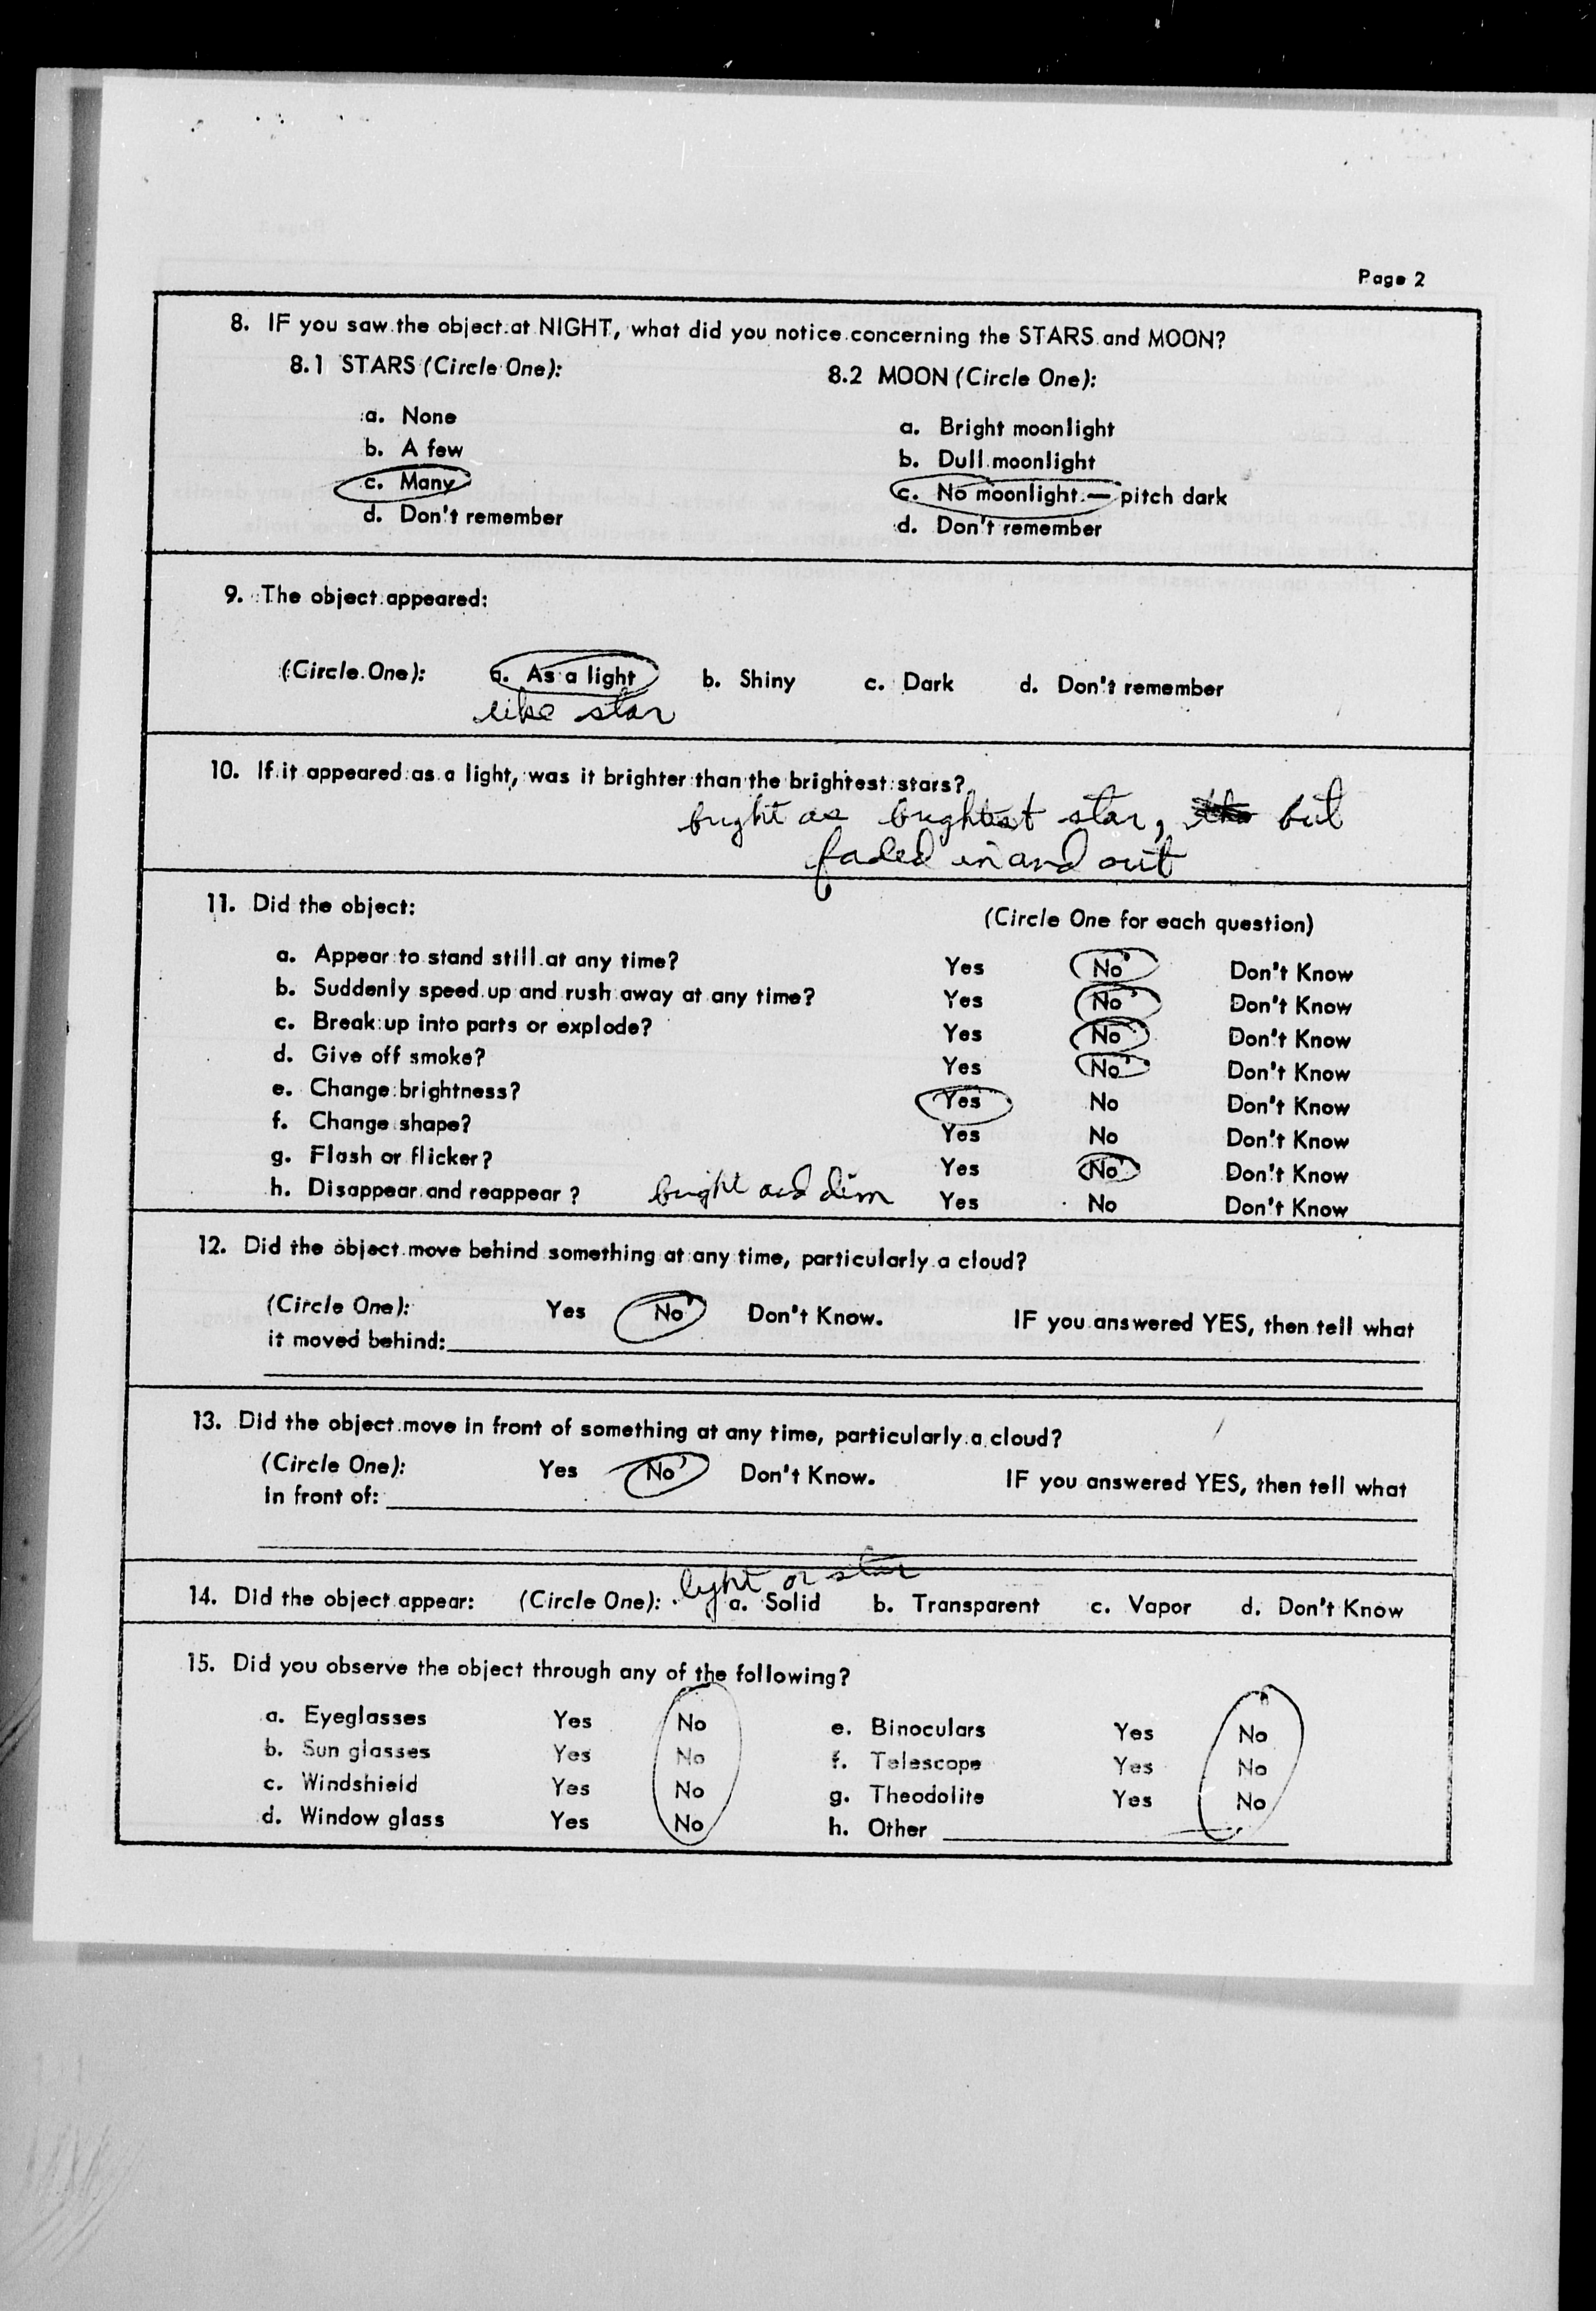 Page 2
8. IF you saw the object at NIGHT, what did you notice concerning the STARS and MOON?
8.1 STARS (Circle One):
a. None
b. A few
c. Many
d. Don't remember
8.2 MOON (Circle One):
a. Bright moonlight
b. Dull moonlight
c. No moonlight — pitch dark
d. Don't remember
9. The object appeared:
(Circle One): a. As a light b. Shiny c. Dark d. Don't remember
like star
10. If it appeared as a light, was it brighter than the brightest stars?
bright as brightest star, but
faded in and out
11. Did the object: (Circle One for each question)
a. Appear to stand still at any time? Yes No Don't Know
b. Suddenly speed up and rush away at any time? Yes No Don't Know
c. Break up into parts or explode? Yes No Don't Know
d. Give off smoke? Yes No Don't Know
e. Change brightness? Yes No Don't Know
f. Change shape? Yes No Don't Know
g. Flash or flicker? Yes No Don't Know
h. Disappear and reappear? bright and dim Yes No Don't Know
12. Did the object move behind something at any time, particularly a cloud?
(Circle One): Yes No Don't Know. IF you answered YES, then tell what
it moved behind:
13. Did the object move in front of something at any time, particularly a cloud?
(Circle One): Yes No Don't Know. IF you answered YES, then tell what
in front of:
light or star
14. Did the object appear: (Circle One): a. Solid b. Transparent c. Vapor d. Don't Know
15. Did you observe the object through any of the following?
a. Eyeglasses Yes No
b. Sun glasses Yes No
c. Windshield Yes No
d. Window glass Yes No
e. Binoculars Yes No
f. Telescope Yes No
g. Theodolite Yes No
h. Other